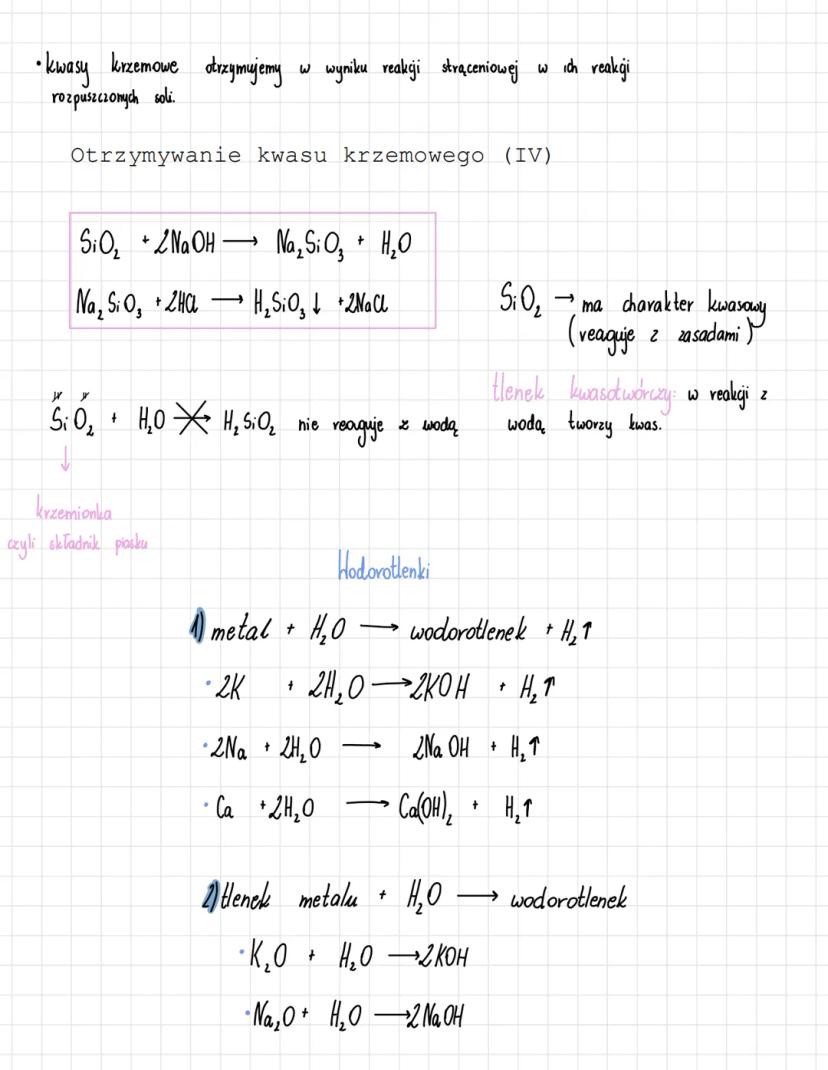 • kwasy krzemowe otrzymujemy w wyniku reakcji strąceniowej w ich reakcji
rozpuszczonych soli.
Otrzymywanie kwasu krzemowego (IV)
SiO₂ + 2NaOH ⟶ Na₂SiO₃ + H₂O
Na₂SiO₃ + 2HCl ⟶ H₂SiO₃↓ + 2NaCl
SiO₂ → ma charakter kwasowy
(reaguje z zasadami)
tlenek kwasotwórczy: w reakcji z
wodą tworzy kwas.
IV II
SiO₂ + H₂O ⟶ H₂SiO₂ nie reaguje z wodą
↓
krzemionka
czyli składnik piasku
Wodorotlenki
1) metal + H₂O ⟶ wodorotlenek + H₂↑
• 2K + 2H₂O ⟶ 2KOH + H₂↑
• 2Na + 2H₂O ⟶ 2NaOH + H₂↑
• Ca + 2H₂O ⟶ Ca(OH)₂ + H₂↑
2) tlenek metalu + H₂O ⟶ wodorotlenek
• K₂O + H₂O ⟶ 2KOH
• Na₂O + H₂O ⟶ 2NaOH